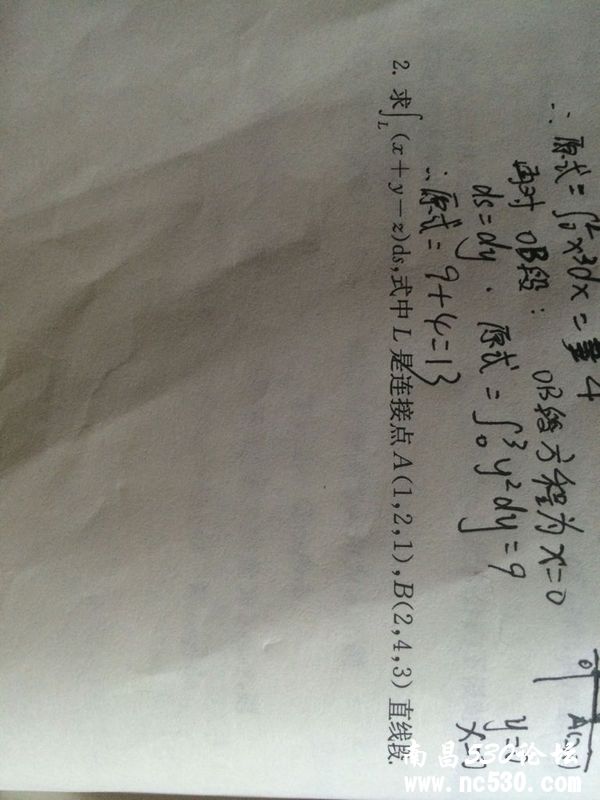 ∴ 原式 = ∫₀² x³dx = 4
再对 OB段: OB段方程为 x=0
ds = dy . 原式 = ∫₀³ y²dy = 9
∴ 原式 = 9+4=13
2. 求∫_L (x+y−z)ds,式中 L 是连接点 A(1,2,1),B(2,4,3) 直线段.
0
南昌530论坛
www.nc530.com